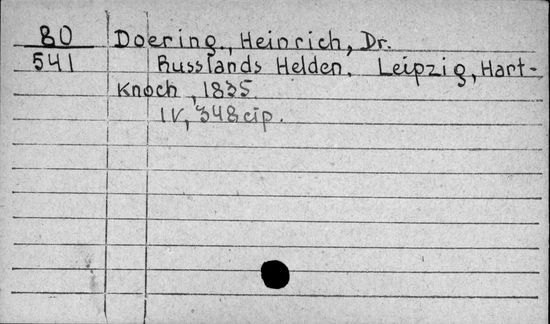 80 Doering, Heinrich, Dr.
541 Russlands Helden. Leipzig, Hart-
Knoch, 1835.
IV, 348 cip.